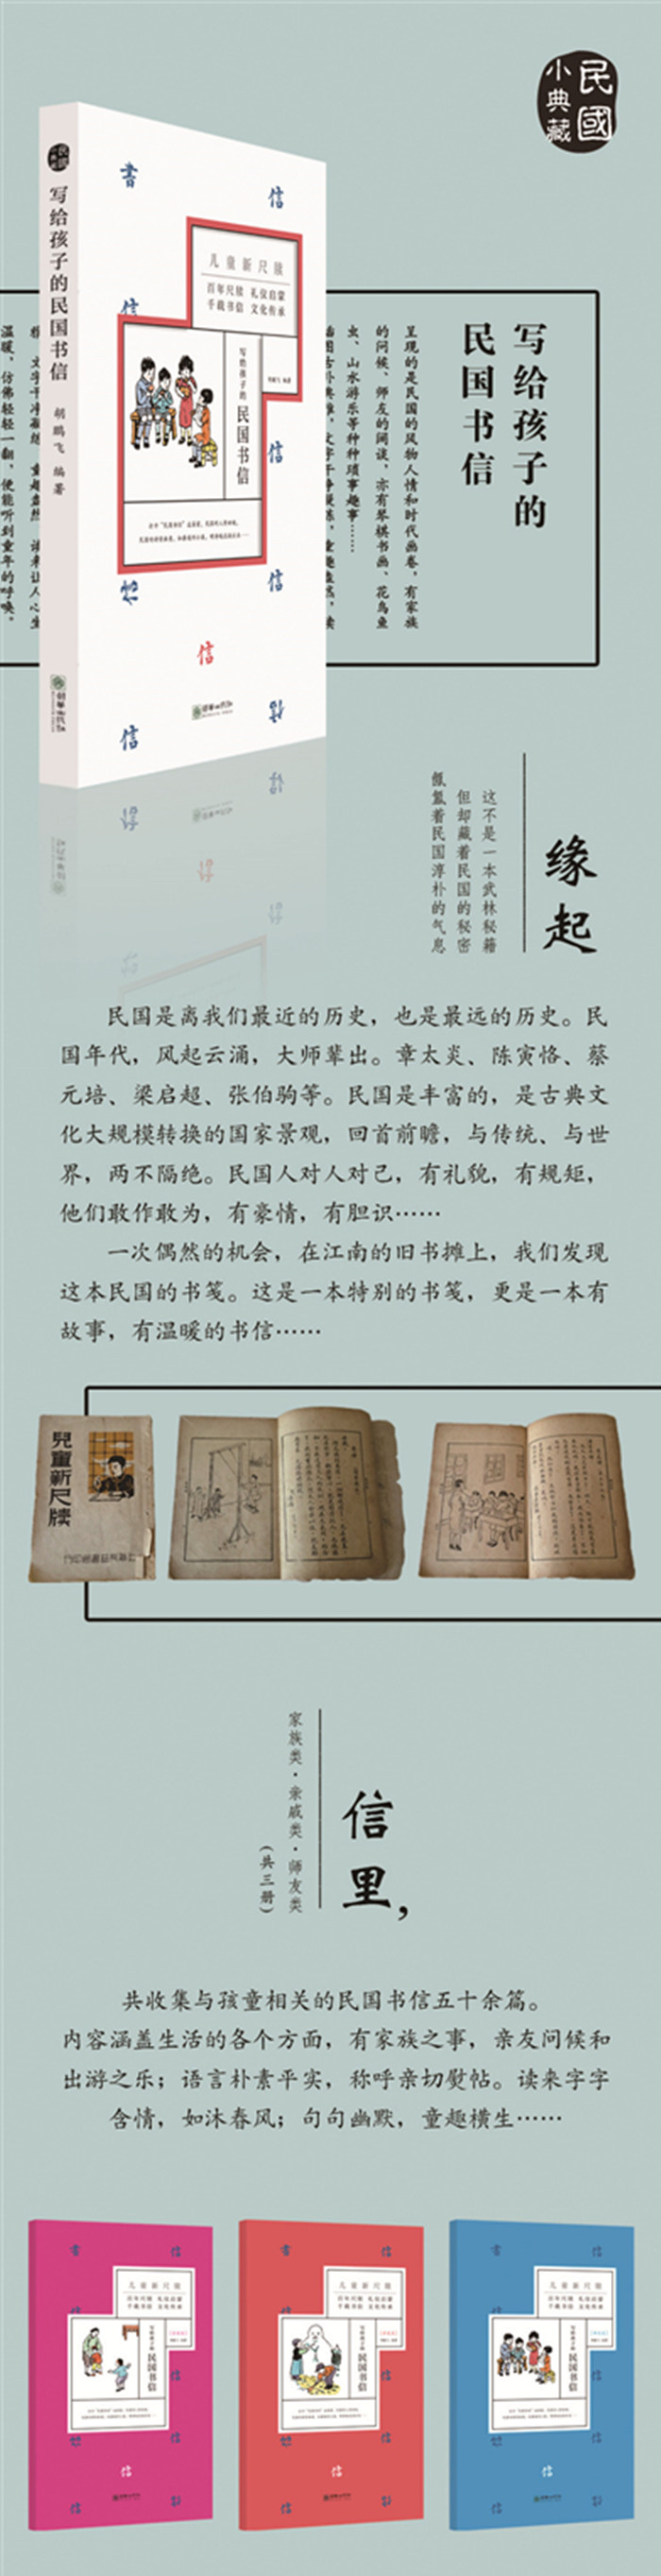 民國
小典藏
写给孩子的民国书信
胡鹏飞 编著
書
信
信
儿童新尺牍
百年尺牍 礼仪启蒙
千载书信 文化传承
写给孩子的
民国书信
胡鹏飞 编著
信
信
信
信
写给孩子的
民国书信
呈现的是民国的风物人情和时代画卷，有家族
的问候、师友的闲谈，亦有琴棋书画、花鸟鱼
虫、山水游乐等种种琐事趣事……
温暖，仿佛轻轻一翻，便能听到童年的呼唤。
缘起
这不是一本武林秘籍
但却藏着民国的秘密
氤氲着民国淳朴的气息
民国是离我们最近的历史，也是最远的历史。民
国年代，风起云涌，大师辈出。章太炎、陈寅恪、蔡
元培、梁启超、张伯驹等。民国是丰富的，是古典文
化大规模转换的国家景观，回首前瞻，与传统、与世
界，两不隔绝。民国人对人对己，有礼貌，有规矩，
他们敢作敢为，有豪情，有胆识……
一次偶然的机会，在江南的旧书摊上，我们发现
这本民国的书笺。这是一本特别的书笺，更是一本有
故事，有温暖的书信……
兒童新尺牘
信里，
家族类·亲戚类·师友类
(共三册)
共收集与孩童相关的民国书信五十余篇。
内容涵盖生活的各个方面，有家族之事，亲友问候和
出游之乐；语言朴素平实，称呼亲切熨帖。读来字字
含情，如沐春风；句句幽默，童趣横生……
書
信
儿童新尺牍
百年尺牍 礼仪启蒙
千载书信 文化传承
写给孩子的
民国书信
信
信
信
信
書
信
儿童新尺牍
百年尺牍 礼仪启蒙
千载书信 文化传承
写给孩子的
民国书信
信
信
信
信
書
信
儿童新尺牍
百年尺牍 礼仪启蒙
千载书信 文化传承
写给孩子的
民国书信
信
信
信
信